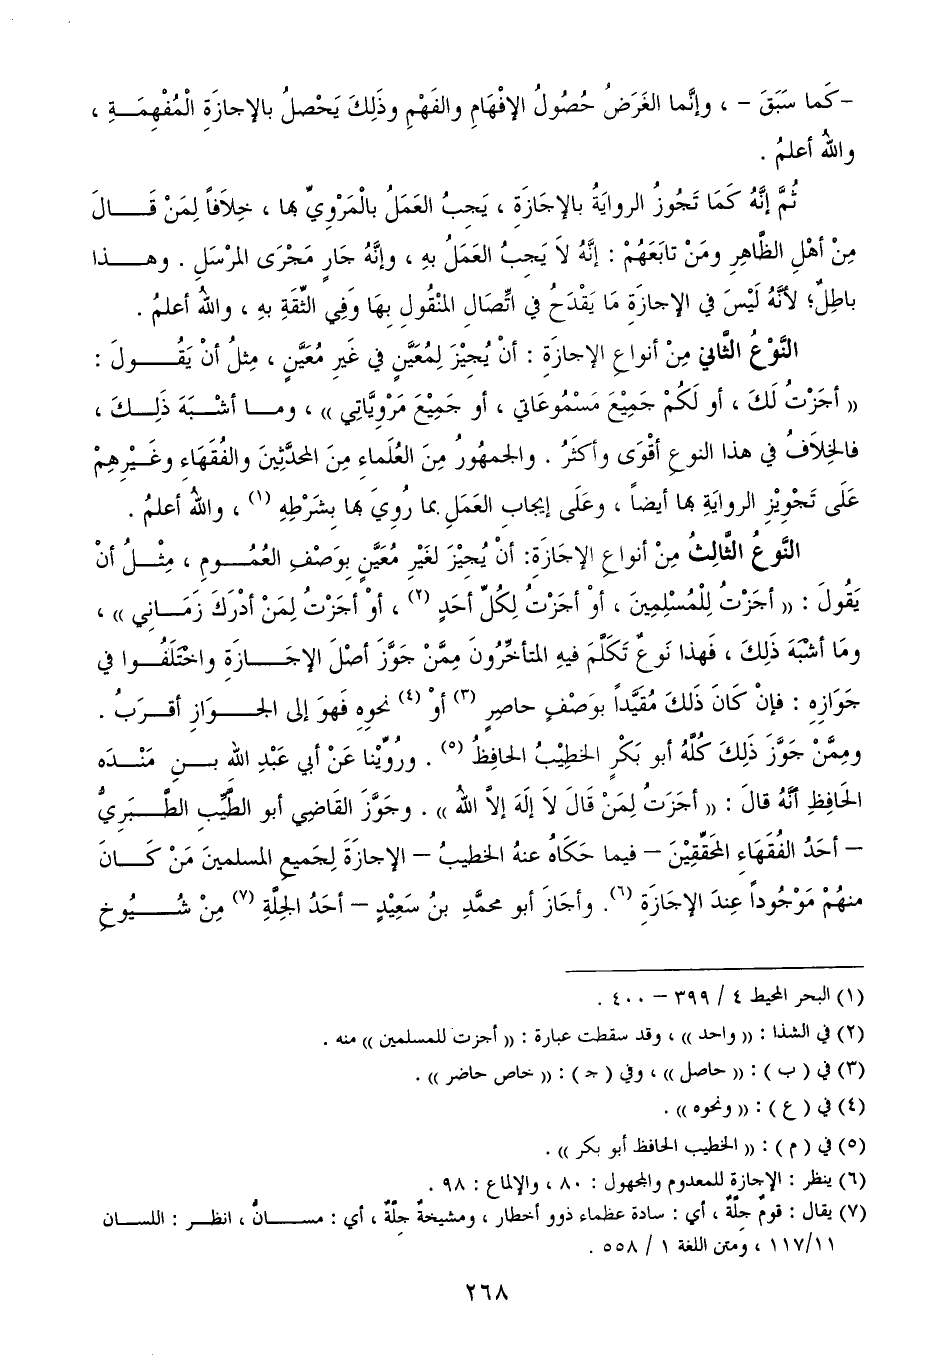 -كَما سَبَقَ - ، وإنَّما الغَرَضُ حُصُولُ الإفْهَامِ والفَهْمِ وذَلِكَ يَحْصلُ بالإجازَةِ الْمُفْهِمَـةِ ،
واللهُ أعلمُ .
ثُمَّ إنَّهُ كَمَا تَجُوز الروايَةُ بالإجازَةِ ، يَجبُ العَمَلُ بالْمَرْوِيِّ بها ، خِلاَفاً لِمَنْ قَـــالَ
مِنْ أهْلِ الظَّاهِرِ ومَنْ تابَعَهُمْ : إنَّهُ لاَ يَجبُ العَمَلُ بهِ ، وإنَّهُ جَارٍ مَجْرَى المرْسَلِ . وهــــذا
باطِلٌ؛ لأنَّهُ لَيْسَ في الإجازَةِ مَا يَقْدَحُ في اتِّصَالِ المنْقُولِ بهَا وَفِي الثِّقَةِ بهِ ، واللهُ أعلمُ .
النَّوْعُ الثَّاني مِنْ أنواعِ الإجازَةِ : أنْ يُجيْزَ لِمُعَيَّنٍ في غَيرِ مُعَيَّنٍ ، مِثلُ أنْ يَقُـــولَ :
(( أجَزْتُ لَكَ ، أو لَكُمْ جَميْعَ مَسْمُوعَاتي ، أو جَميْعَ مَرْوِيَّاتِي )) ، ومـا أشْـبَهَ ذَلِـكَ ،
فالخِلاَفُ في هذا النوعِ أقْوَى وأكثَرُ . والجمهُورُ مِنَ العُلَماءِ مِنَ المحدِّثِينَ والفُقَهَاءِ وغَـيْرِهِمْ
عَلَى تَجْوِيْزِ الروايَةِ بها أيضاً ، وعَلَى إيجابِ العَمَلِ بما رُوِيَ بها بشَرْطِهِ (١) ، واللهُ أعلمُ .
النَّوعُ الثَّالِثُ مِنْ أنواعِ الإجازَةِ: أنْ يُجيْزَ لغَيْرِ مُعَيَّنٍ بوَصْفِ العُمُـــومِ ، مِثْـلُ أنْ
يَقُولَ : (( أجَزْتُ لِلْمُسْلِمِينَ ، أوْ أجَزْتُ لِكُلِّ أحَدٍ (٢) ، أوْ أجَزْتُ لِمَنْ أدْرَكَ زَمَـاني )) ،
ومَا أشْبَهَ ذَلِكَ ، فَهذا نَوعٌ تَكَلَّمَ فيهِ المتأخِّرُونَ مِمَّنْ جَوَّزَ أصْلَ الإجَـــازَةِ واخْتَلَفُــوا في
جَوَازِهِ : فإنْ كَانَ ذَلكَ مُقيَّداً بوَصْفٍ حاصِرٍ (٣) أوْ (٤) نحوِهِ فَهوَ إلى الجَــوَازِ أقرَبُ .
ومِمَّنْ جَوَّزَ ذَلِكَ كُلَّهُ أبو بَكْرٍ الخطِيْبُ الحَافِظُ (٥) . ورُوِّيْنا عَنْ أبي عَبْدِ اللهِ بــنِ مَنْـدَه
الحَافِظِ أنَّهُ قالَ : (( أجَزتُ لِمَنْ قَالَ لاَ إلَهَ إلاَّ اللهُ )) . وجَوَّزَ القَاضِي أبو الطَّيِّبِ الطَّـبَرِيُّ
- أحَدُ الفُقَهَاءِ المحَقِّقِيْنَ - فيما حَكَاهُ عنهُ الخطيبُ - الإجازَةَ لِجَميعِ المسلمينَ مَنْ كَــانَ
منهُمْ مَوْجُوداً عِندَ الإجَازَةِ (٦). وأجَازَ أبو محمَّدِ بنُ سَعِيْدٍ - أحَدُ الجِلَّةِ (٧) مِنْ شُــيُوخِ
(١) البحر المحيط ٤ / ٣٩٩ - ٤٠٠ .
(٢) في الشذا : (( واحد )) ، وقد سقطت عبارة : (( أجزت للمسلمين )) منه .
(٣) في ( ب ) : (( حاصل )) ، وفي ( جـ ) : (( خاص حاضر )) .
(٤) في ( ع ) : (( ونحوه )) .
(٥) في ( م ) : (( الخطيب الحافظ أبو بكر )) .
(٦) ينظر : الإجازة للمعدوم والمجهول : ٨٠ ، والإلماع : ٩٨ .
(٧) يقال : قومٌ جِلَّةٌ ، أي : سادة عظماء ذوو أخطار ، ومشيخةٌ جلَّةٌ ، أي : مســانٌّ ، انظـر : اللسـان
١١٧/١١ ، ومتن اللغة ١ / ٥٥٨ .
٢٦٨